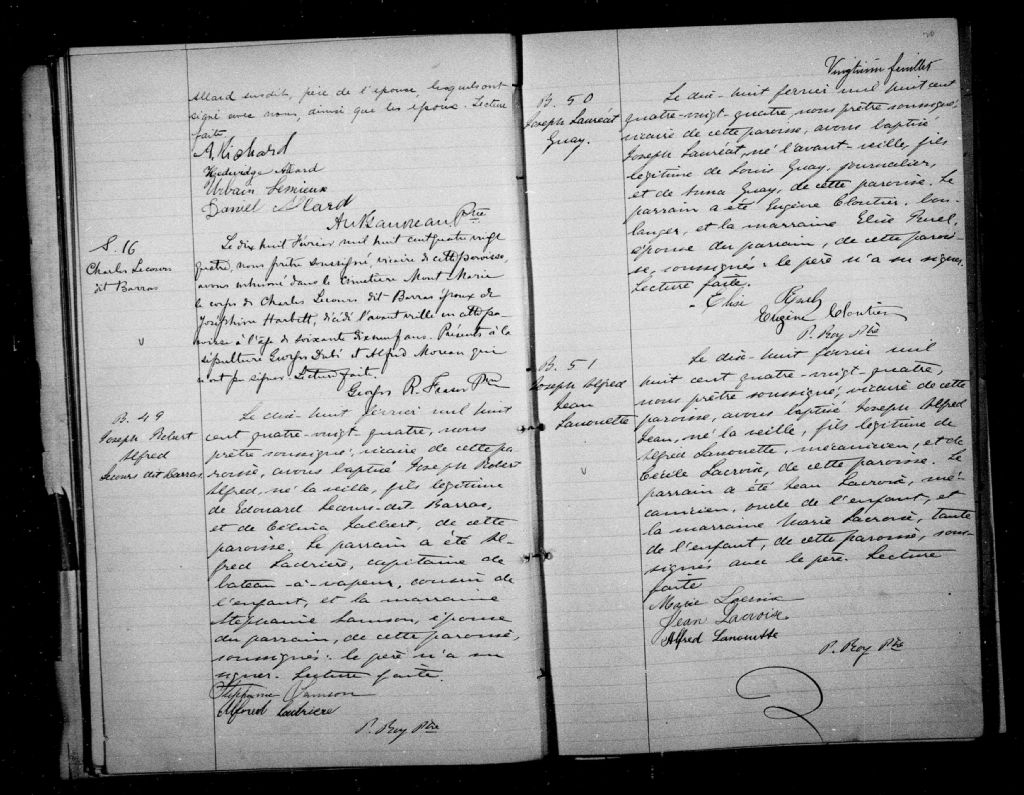 Allard susdit, père de l'épouse, lesquels ont
signé avec nous, ainsi que les époux. Lecture
faite.
A. Richard
Hedwidge Allard
Urbain Lemieux
Daniel Allard
Ptre
S. 16
Charles Lecours
dit Barras
Le dix huit Février mil huit cent quatre vingt
quatre, nous prêtre soussigné, vicaire de cette paroisse,
avons inhumé dans le cimetière Mont Marie
le corps de Charles Lecours dit Barras époux de
Josephine Harbett, décédé l'avant veille en cette pa-
roisse à l'âge de soixante dix neuf ans. Présents à la
sépulture Georges Dubé et Alfred Moreau qui
n'ont pu signer. Lecture faite.
Georges R. Fraser Ptre
B. 49
Joseph Robert
Alfred
Lecours dit Barras
Le dix-huit février mil huit
cent quatre-vingt-quatre, nous
prêtre soussigné, vicaire de cette pa-
roisse, avons baptisé Joseph Robert
Alfred, né la veille, fils légitime
de Edouard Lecours-dit Barras,
et de Célina Jalbert, de cette
paroisse. Le parrain a été Al-
fred Ladrière, capitaine de
bateau-à-vapeur, cousin de
l'enfant, et la marraine
Stéphanie Samson, épouse
du parrain, de cette paroisse,
soussignés: le père n'a su
signer. Lecture faite.
Stéphanie Samson
Alfred Ladriere
P. Roy Ptre
20
Vingtième feuillet
B. 50
Joseph Lauréat
Guay.
Le dix-huit février mil huit cent
quatre-vingt-quatre, nous prêtre soussigné,
vicaire de cette paroisse, avons baptisé
Joseph Lauréat, né l'avant-veille, fils
légitime de Louis Guay, journalier,
et de Anna Guay, de cette paroisse. Le
parrain a été Eugène Cloutier, bou-
langer, et la marraine Elise Ruel,
épouse du parrain, de cette parois-
se, soussignés: le père n'a su signer.
Lecture faite.
Elise Ruel
Eugène Cloutier
P. Roy Ptre
B. 51
Joseph Alfred
Jean
Lanouette
Le dix-huit février mil
huit cent quatre-vingt-quatre,
nous prêtre soussigné, vicaire de cette
paroisse, avons baptisé Joseph Alfred
Jean, né la veille, fils légitime de
Alfred Lanouette, mécanicien, et de
Cécile Lacroix, de cette paroisse. Le
parrain a été Jean Lacroix, mé-
canicien, oncle de l'enfant, et
la marraine Marie Lacroix, tante
de l'enfant, de cette paroisse, sous-
signés avec le père. Lecture
faite
Marie Lacroix
Jean Lacroix
Alfred Lanouette
P. Roy Ptre